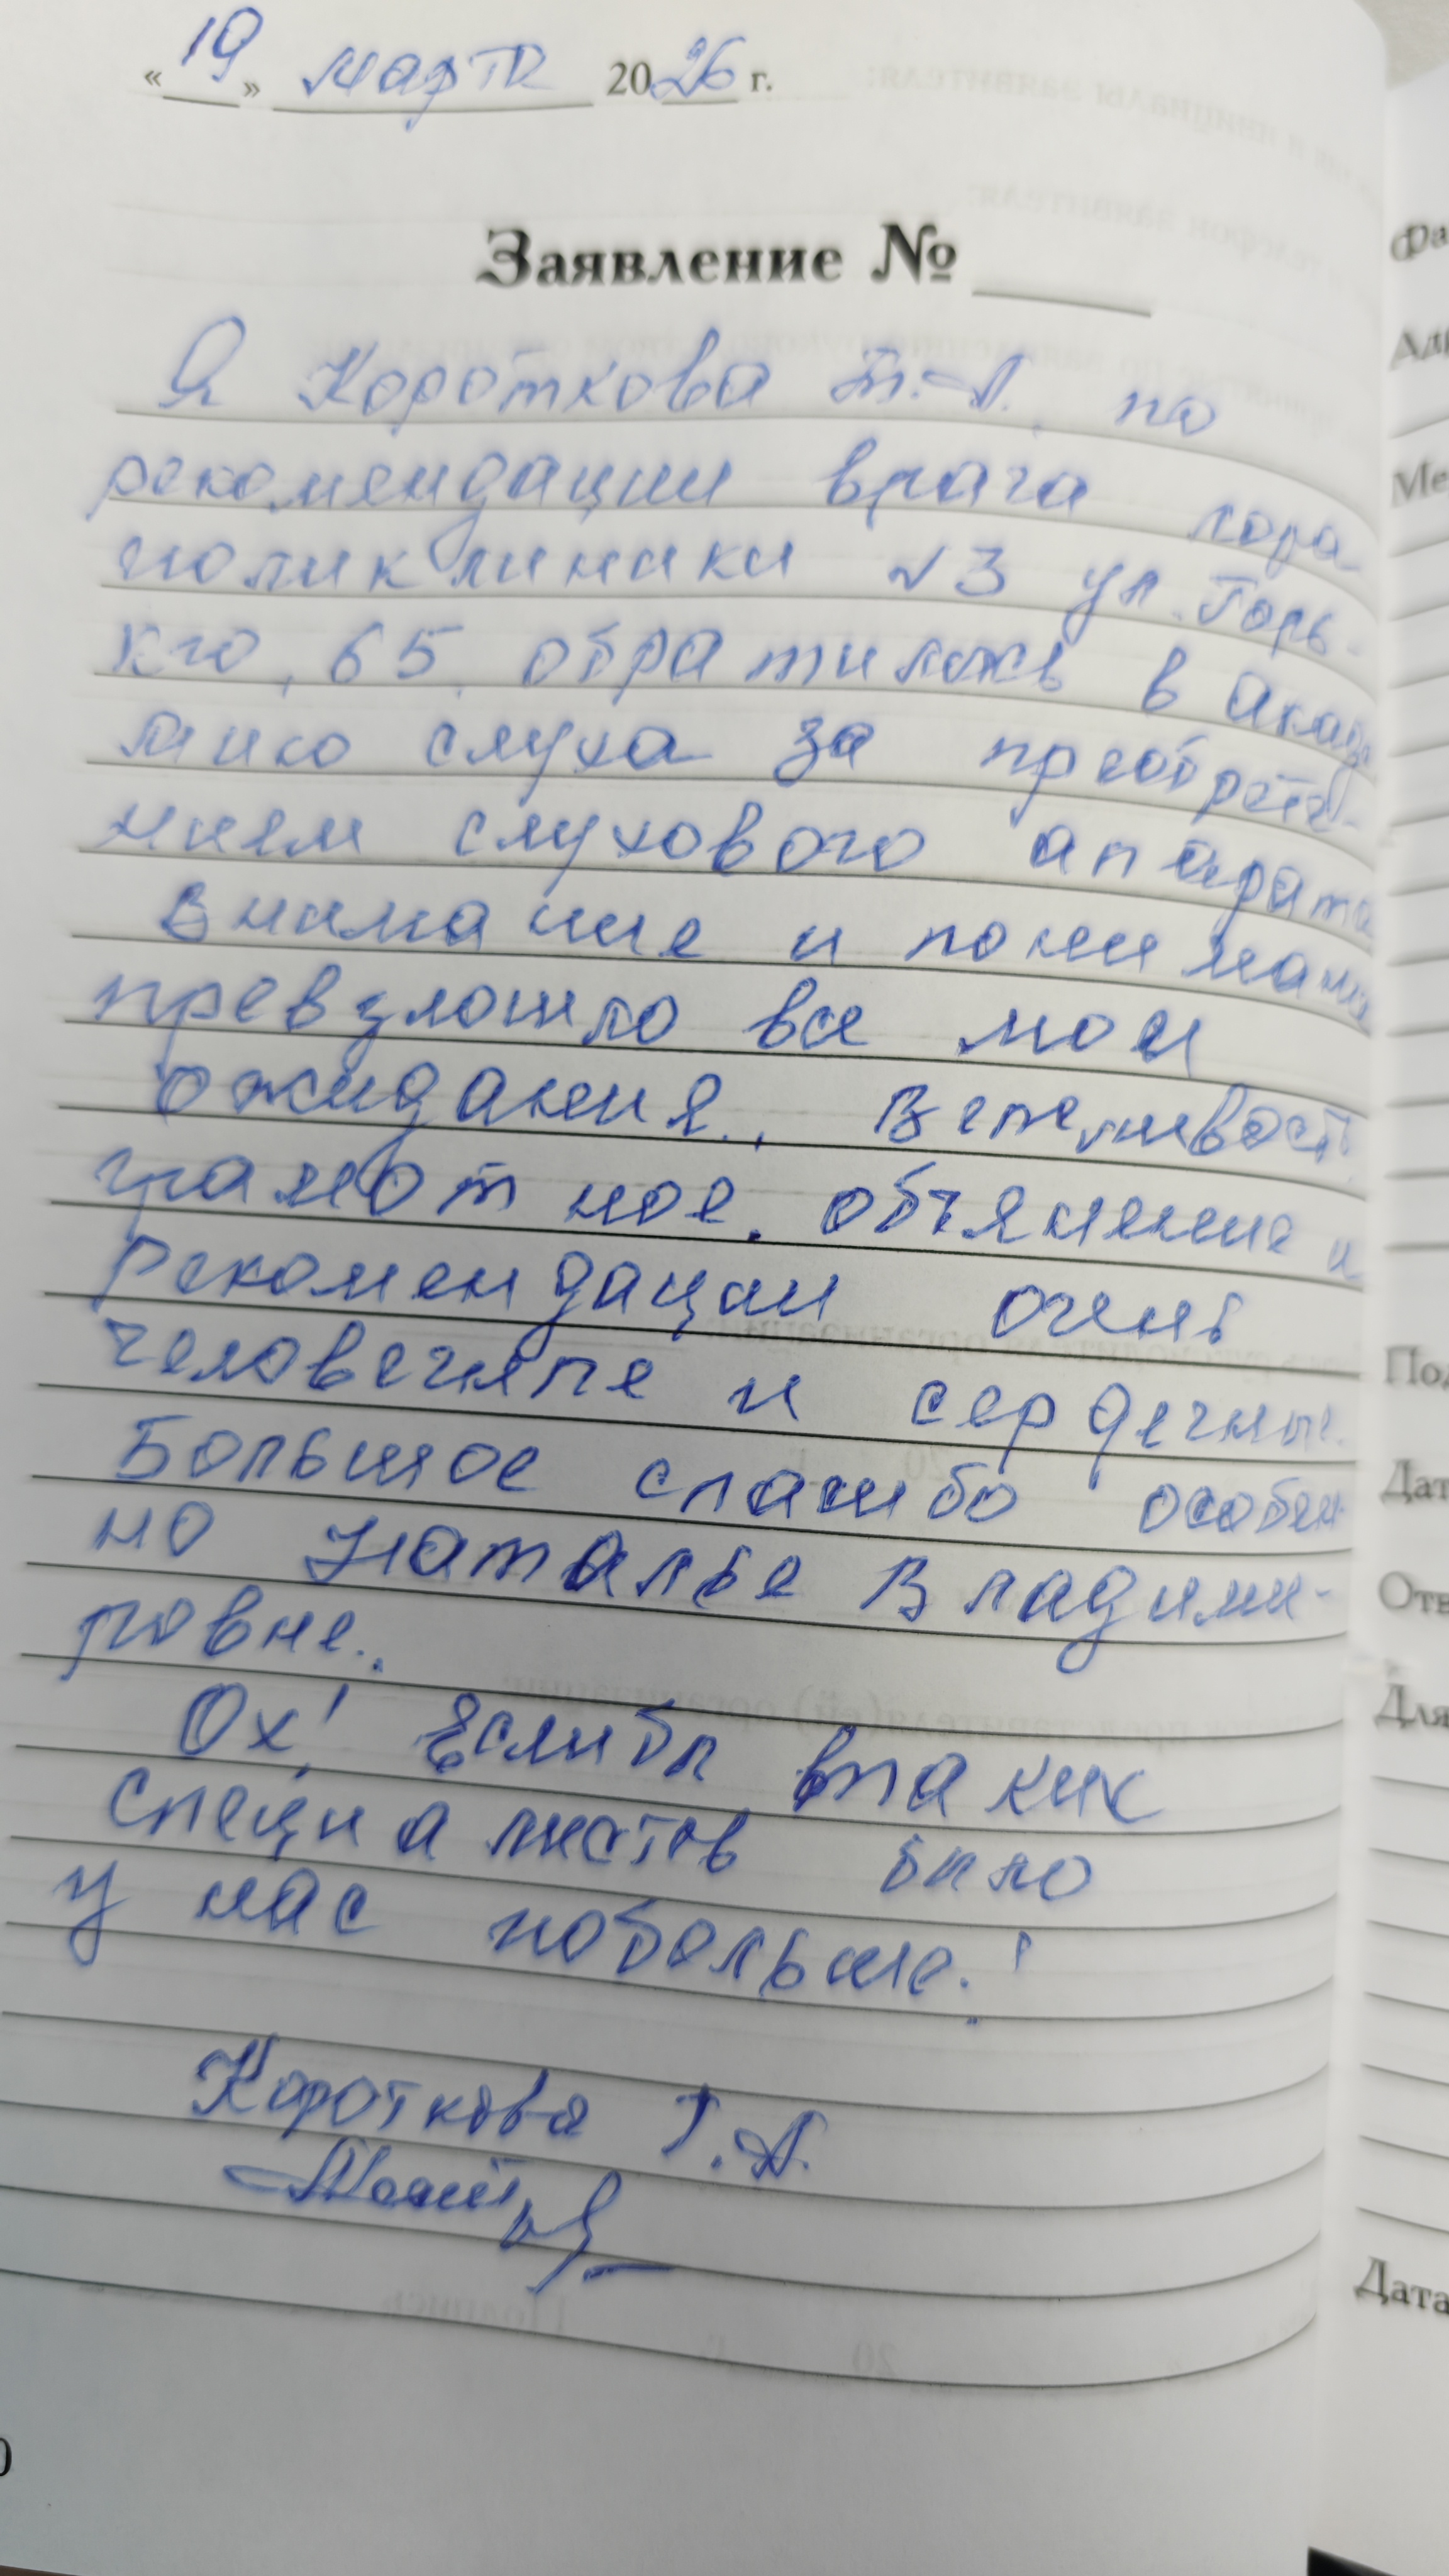 «19» марта 2026 г.
Заявление №
Я Короткова Т.А. по
рекомендации врача лора
поликлиники №3 ул. Горь-
кго, 65, обратилась в Акаде
мию слуха за преобрете-
нием слухового апарата
Внимание и понимание
превзлошло все мои
ожидания. Вежливость
грамотное объянение и
рекомендации очень
человечные и сердечные.
Большое спасибо особен
но Наталье Владими-
ровне.
Ох! Еслибы таких
специалистов было
у нас побольше!
Короткова Т.А.
Фа
Ад
Ме
Под
Дат
Отв
Для
Дата
0